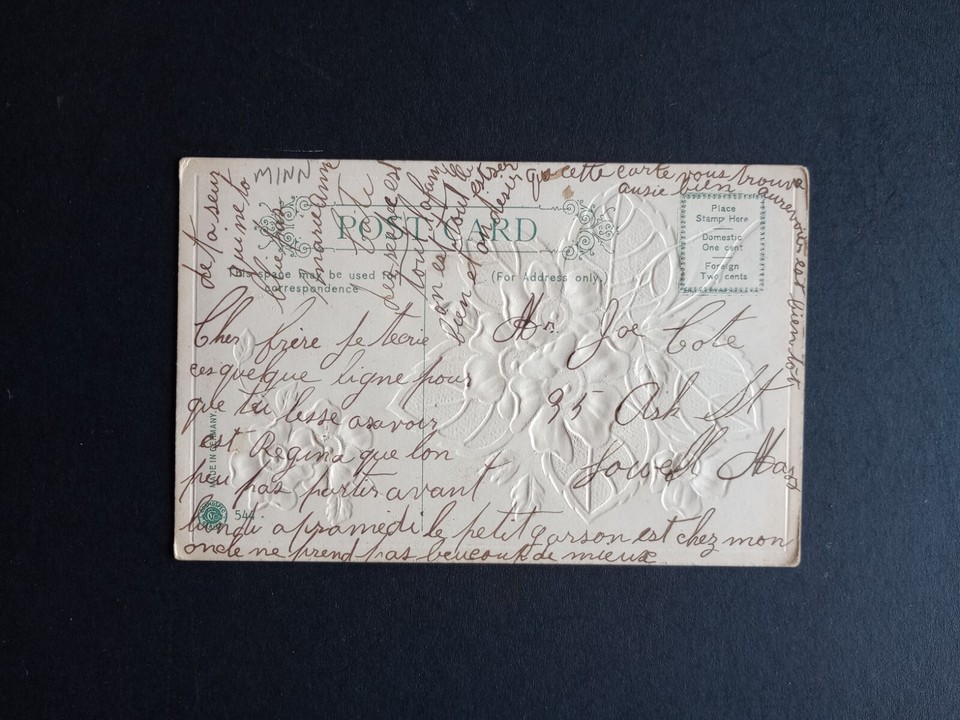 MINN
POST CARD
This space may be used for
correspondence
(For Address only)
Place
Stamp Here
Domestic
One cent
Foreign
Two cents
Cher frère je tecrie
ces queque ligne pour
que tu lesse asavoir
est Regina que lon
peu pas partir avant
lundi apramedi le petit garson est chez mon
oncle ne prend pas beucoup de mieux
de ta seur
qui ne to
marieanne
tout
bien et au desir
que cette carte vous trouve
ausie bien
aurevoire est bientot
Mr. Joe Cote
95 Ash St
Lowell Mass
MADE IN GERMANY
544